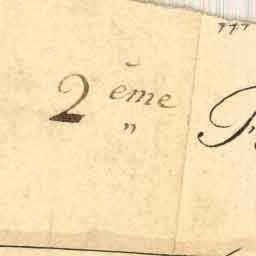 2 ème
"